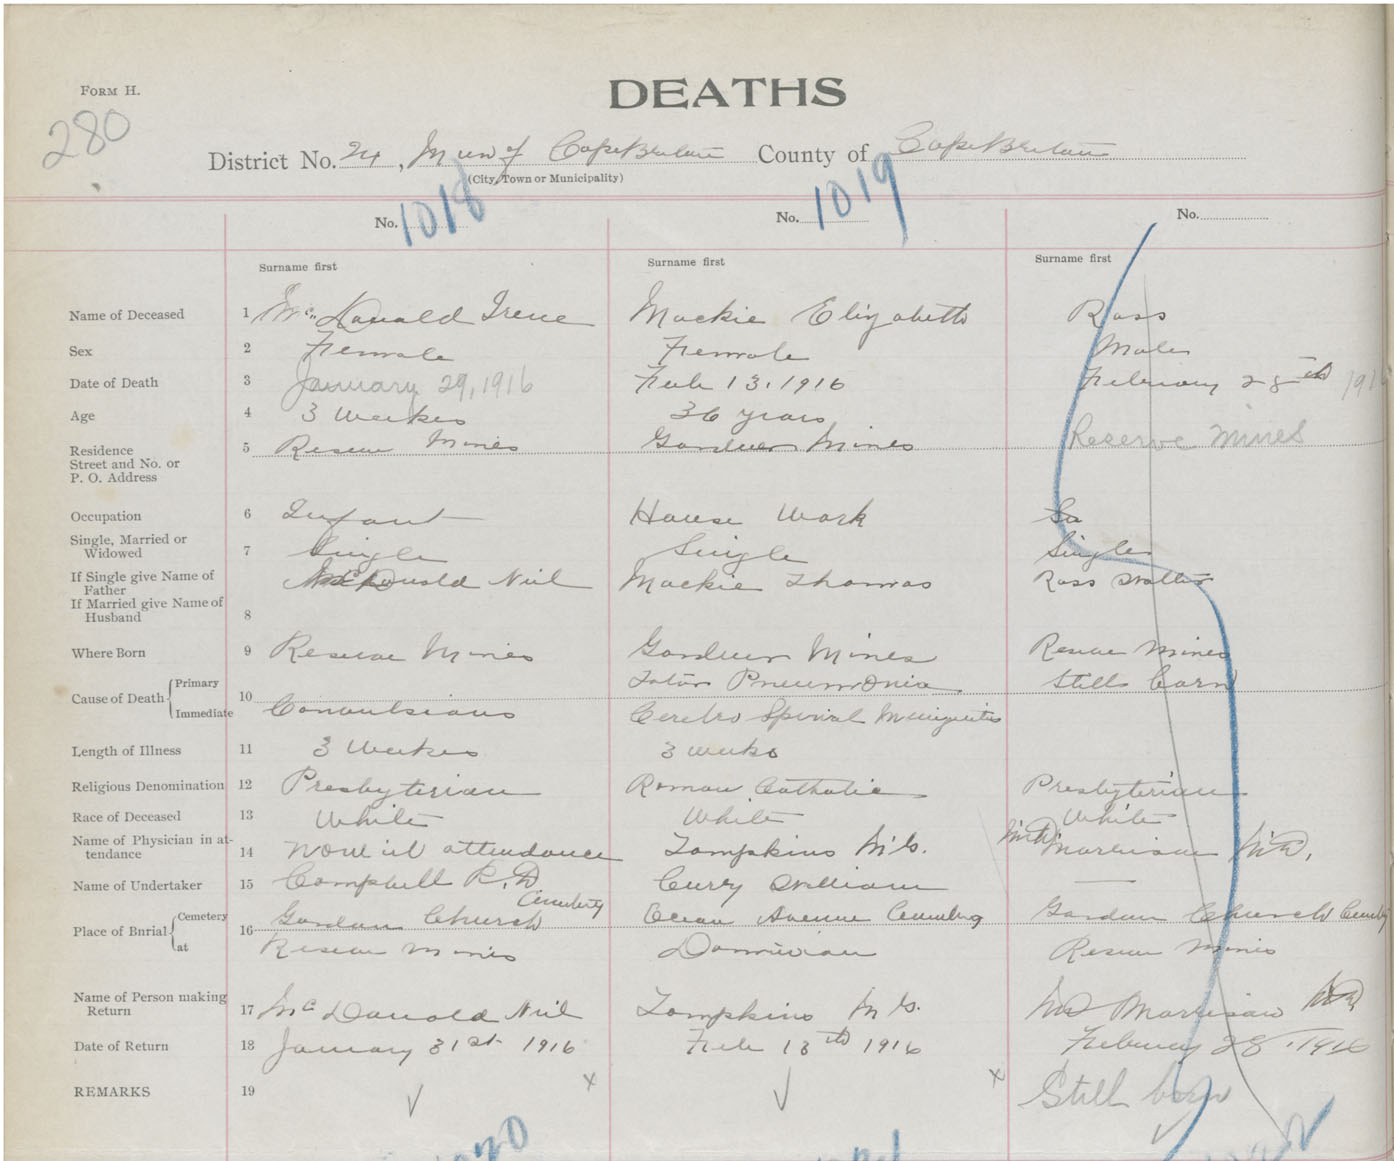 FORM H.
DEATHS
280
District No. 24, Mun of Cape Breton County of Cape Breton
(City, Town or Municipality)
No. 1018 No. 1019 No.
Surname first Surname first Surname first
Name of Deceased 1 McDonald Irene Mackie Elizabeth Ross
Sex 2 Female Female Male
Date of Death 3 January 29, 1916 Feb 13, 1916 February 28th 1916
Age 4 3 Weekes 36 years
Residence
Street and No. or
P. O. Address
5 Reserve Mines Gardner Mines Reserve Mines
Occupation 6 Infant House Work
Single, Married or
Widowed
7 Single Single Single
If Single give Name of
Father
McDonald Neil Mackie Thomas Ross Walter
If Married give Name of
Husband
8
Where Born 9 Reserve Mines Gardner Mines Reserve Mines
Cause of Death Primary Lobar Pneumonia Still Born
10
Immediate Convulsions Cerebro Spinal Meningitis
Length of Illness 11 3 Weekes 3 weeks
Religious Denomination 12 Presbyterian Roman Catholic Presbyterian
Race of Deceased 13 White White White
Name of Physician in at-
tendance
14 None in attendance Tompkins M. G. Morrison M.D.
Name of Undertaker 15 Campbell R. D Curry William —
Place of Burial Cemetery Gordon Church Cemetery Ocean Avenue Cemetery Gordon Church Cemetery
16
at Reserve Mines Dominion Reserve Mines
Name of Person making
Return
17 McDonald Neil Tompkins M G. MD Morrison MD
Date of Return 18 January 31st 1916 Feb 13th 1916 February 28, 1916
REMARKS 19 Still born
1020